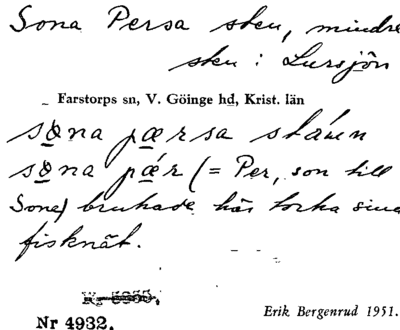 Sona Persa sten, mindre
sten i Lursjön
Farstorps sn, V. Göinge hd, Krist. län
sǫna pærsa
sǫna pǽr (= Per, son till
Sone) brukade här torka sina
fisknät.
Nr 4932.
Erik Bergenrud 1951.